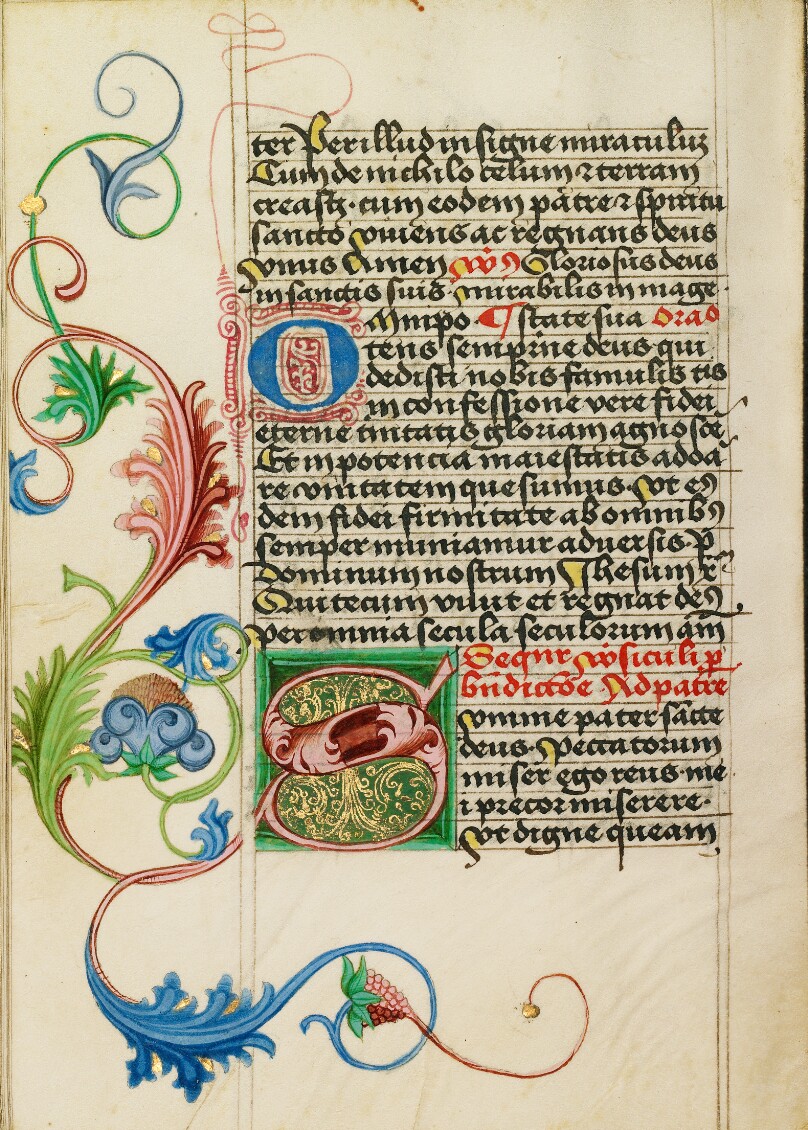 ter Per illud insigne miraculuz
Cum de nichilo celum ⁊ terram
creastꝫ · cum eodem patre ⁊ spiritu
sancto viuens ac regnans deus
vnus Amen Gloriosus deus
in sanctis suis · mirabilis in mage ·
Omnipo · ¶ state sua Orao
tens sempitne deus qui
dedisti nobis famulis tis
in confessione vere fidei
eterne tnitatis gloriam agnosce
Et in potencia maiestatis adoa
re vnitatem quesumus · vt eꝰ
dem fidei firmitate ab omnibꝰ
semper muniamur aduersis · P̄
dominum nostrum Ihesum xr̄
Qui tecum viuit et regnat deꝰ
per omnia secula seculorum am̄
Sequr v̊siculi p̱
bn̄dictōe · Ad patre
Summe pater sācte
deus · Peccatorum
miser ego reus · me
i precor miserere ·
vt digne queam